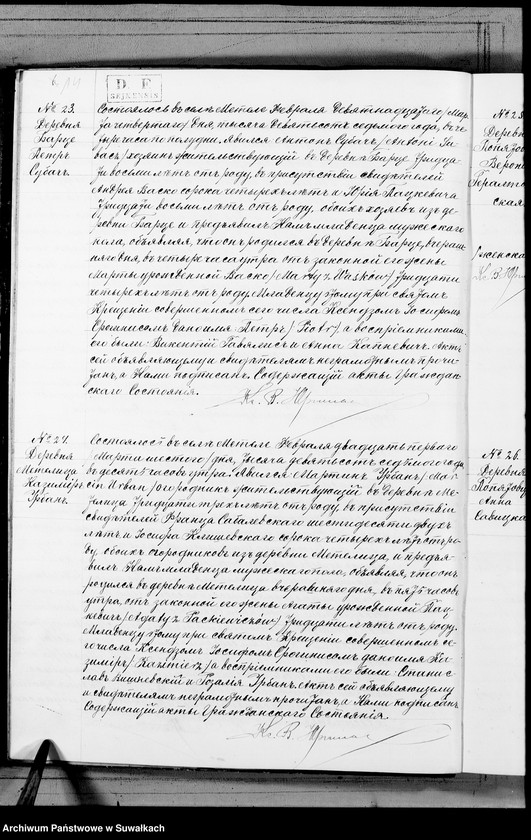 D. F.
SEJNENSIS
№ 23.
Деревня
Барце
Петръ
Субачъ.
Состоялось въ селѣ Метеле Февраля девятнадцатаго /Мар-
та четвертаго/ дня, тысяча девятьсотъ седьмого года, въ че-
тыре часа по полудни. Явился Антонъ Субачъ /Antoni Su-
bacz/ хозяинъ жительствующій въ деревнѣ Барце, тридца-
ти восьми лѣтъ отъ роду, въ присутствіи свидѣтелей
Андрея Васко сорока четырехъ лѣтъ и Юрія Пацкевича
тридцати восьми лѣтъ отъ роду, обоихъ хозяевъ изъ де-
ревни Барце и предъявилъ Намъ младенца мужескаго
пола, объявляя, что онъ родился въ деревнѣ Барце, вчераш-
няго дня, въ четыре часа утра отъ законной его жены
Марты урожденной Васко /Marty z Wasków/ тридцати
четырехъ лѣтъ отъ роду. Младенцу этому при святомъ
Крещеніи совершенномъ сего числа Ксендзомъ Іосифомъ
дано имя Петръ /Piotr/, а воспріемниками
его были: Викентій и Анна Актъ
сей объявляющему и свидѣтелямъ неграмотнымъ прочи-
танъ, и Нами подписанъ. Содержащій акты Граждан-
скаго Состоянія.
Кс. В.
№ 24.
Деревня
Метелица
Казимѣръ
Урбанъ.
Состоялось въ селѣ Метеле Февраля двадцать перваго
/Марта шестого/ дня, тысяча девятьсотъ седьмого года,
въ десять часовъ утра. Явился Мартинъ Урбанъ /Mar-
cin Urban/ огородникъ жительствующій въ деревнѣ Ме-
телица тридцати трехъ лѣтъ отъ роду, въ присутствіи
свидѣтелей Франца Сабалевскаго шестидесяти двухъ
лѣтъ и Іосифа сорока четырехъ лѣтъ отъ ро-
ду, обоихъ огородниковъ изъ деревни Метелица, и предъя-
вилъ Намъ младенца мужескаго пола, объявляя, что онъ
родился въ деревнѣ Метелица вчерашняго дня, въ пять часовъ
утра, отъ законной его жены Агаты урожденной Пац-
кевичъ /Agaty z Packiewiczów/ тридцати лѣтъ отъ роду.
Младенцу этому при святомъ Крещеніи совершенномъ се-
го числа Ксендзомъ Іосифомъ дано имя Ка-
зимѣръ /Kazimierz/ а воспріемниками его были: Станис-
лавъ и Розалія Урбанъ. Актъ сей объявляющему
и свидѣтелямъ неграмотнымъ прочитанъ, и Нами подписанъ.
Содержащій акты Гражданскаго Состоянія.
Кс. В.
№ 25.
Деревн
Верони
скал
№ 26.
Деревня
Анна
Савицка
Archiwum Państwowe w Suwałkach